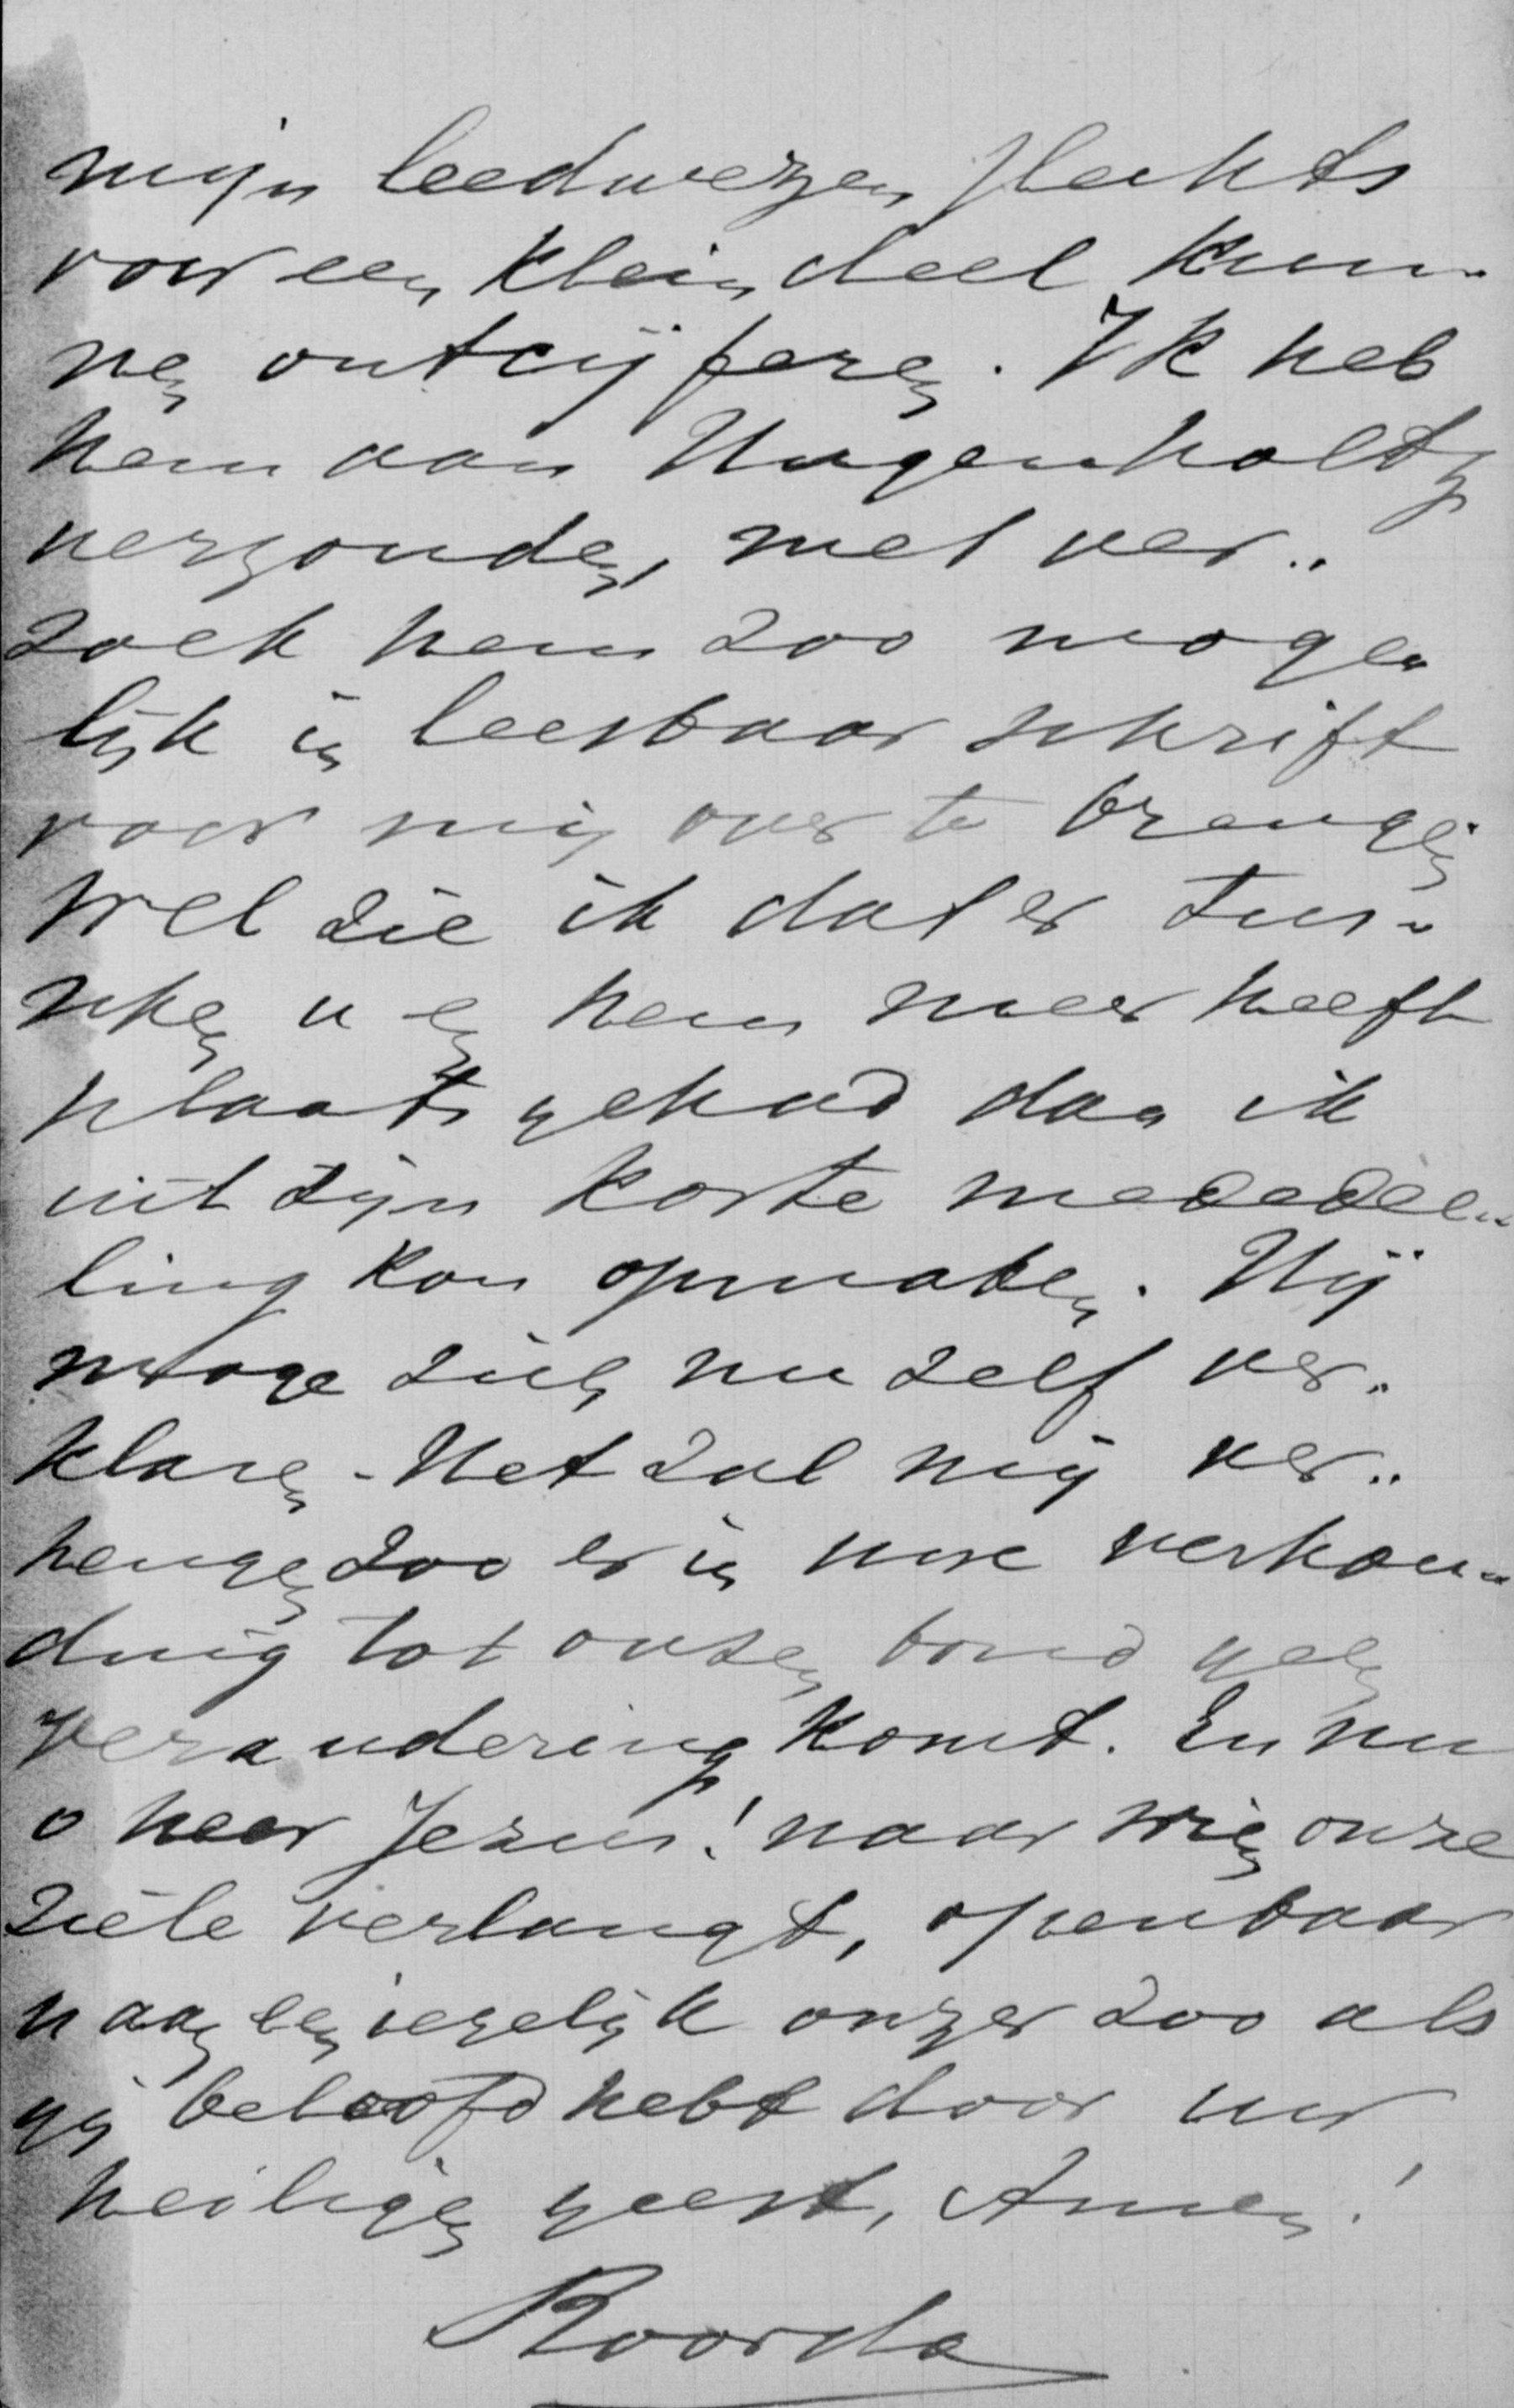 mijn leedwezen slechts
voor een klein deel kun-
nen ontcijferen. Ik heb
hem aan Hugenholtz
verzonden, met ver-
zoek hem zoo moge-
lijk in leesbaar schrift
voor mij over te brengen
Wel zie ik dat er tus-
schen u en hem meer heeft
plaats gehad dan ik
uit zijn korte mededee-
ling kon opmaken. Hij
moge zich nu zelf ver-
klaren. Het zal mij ver-
heugen zoo er in uwe verhou-
ding tot onzen bond geen
verandering komt. En nu
o heer Jezus! naar wien onze
ziele verlangt, openbaar
u aan een iegelijk onzer zoo als
gij beloofd hebt door uw
heiligen geest, Amen!
Roorda